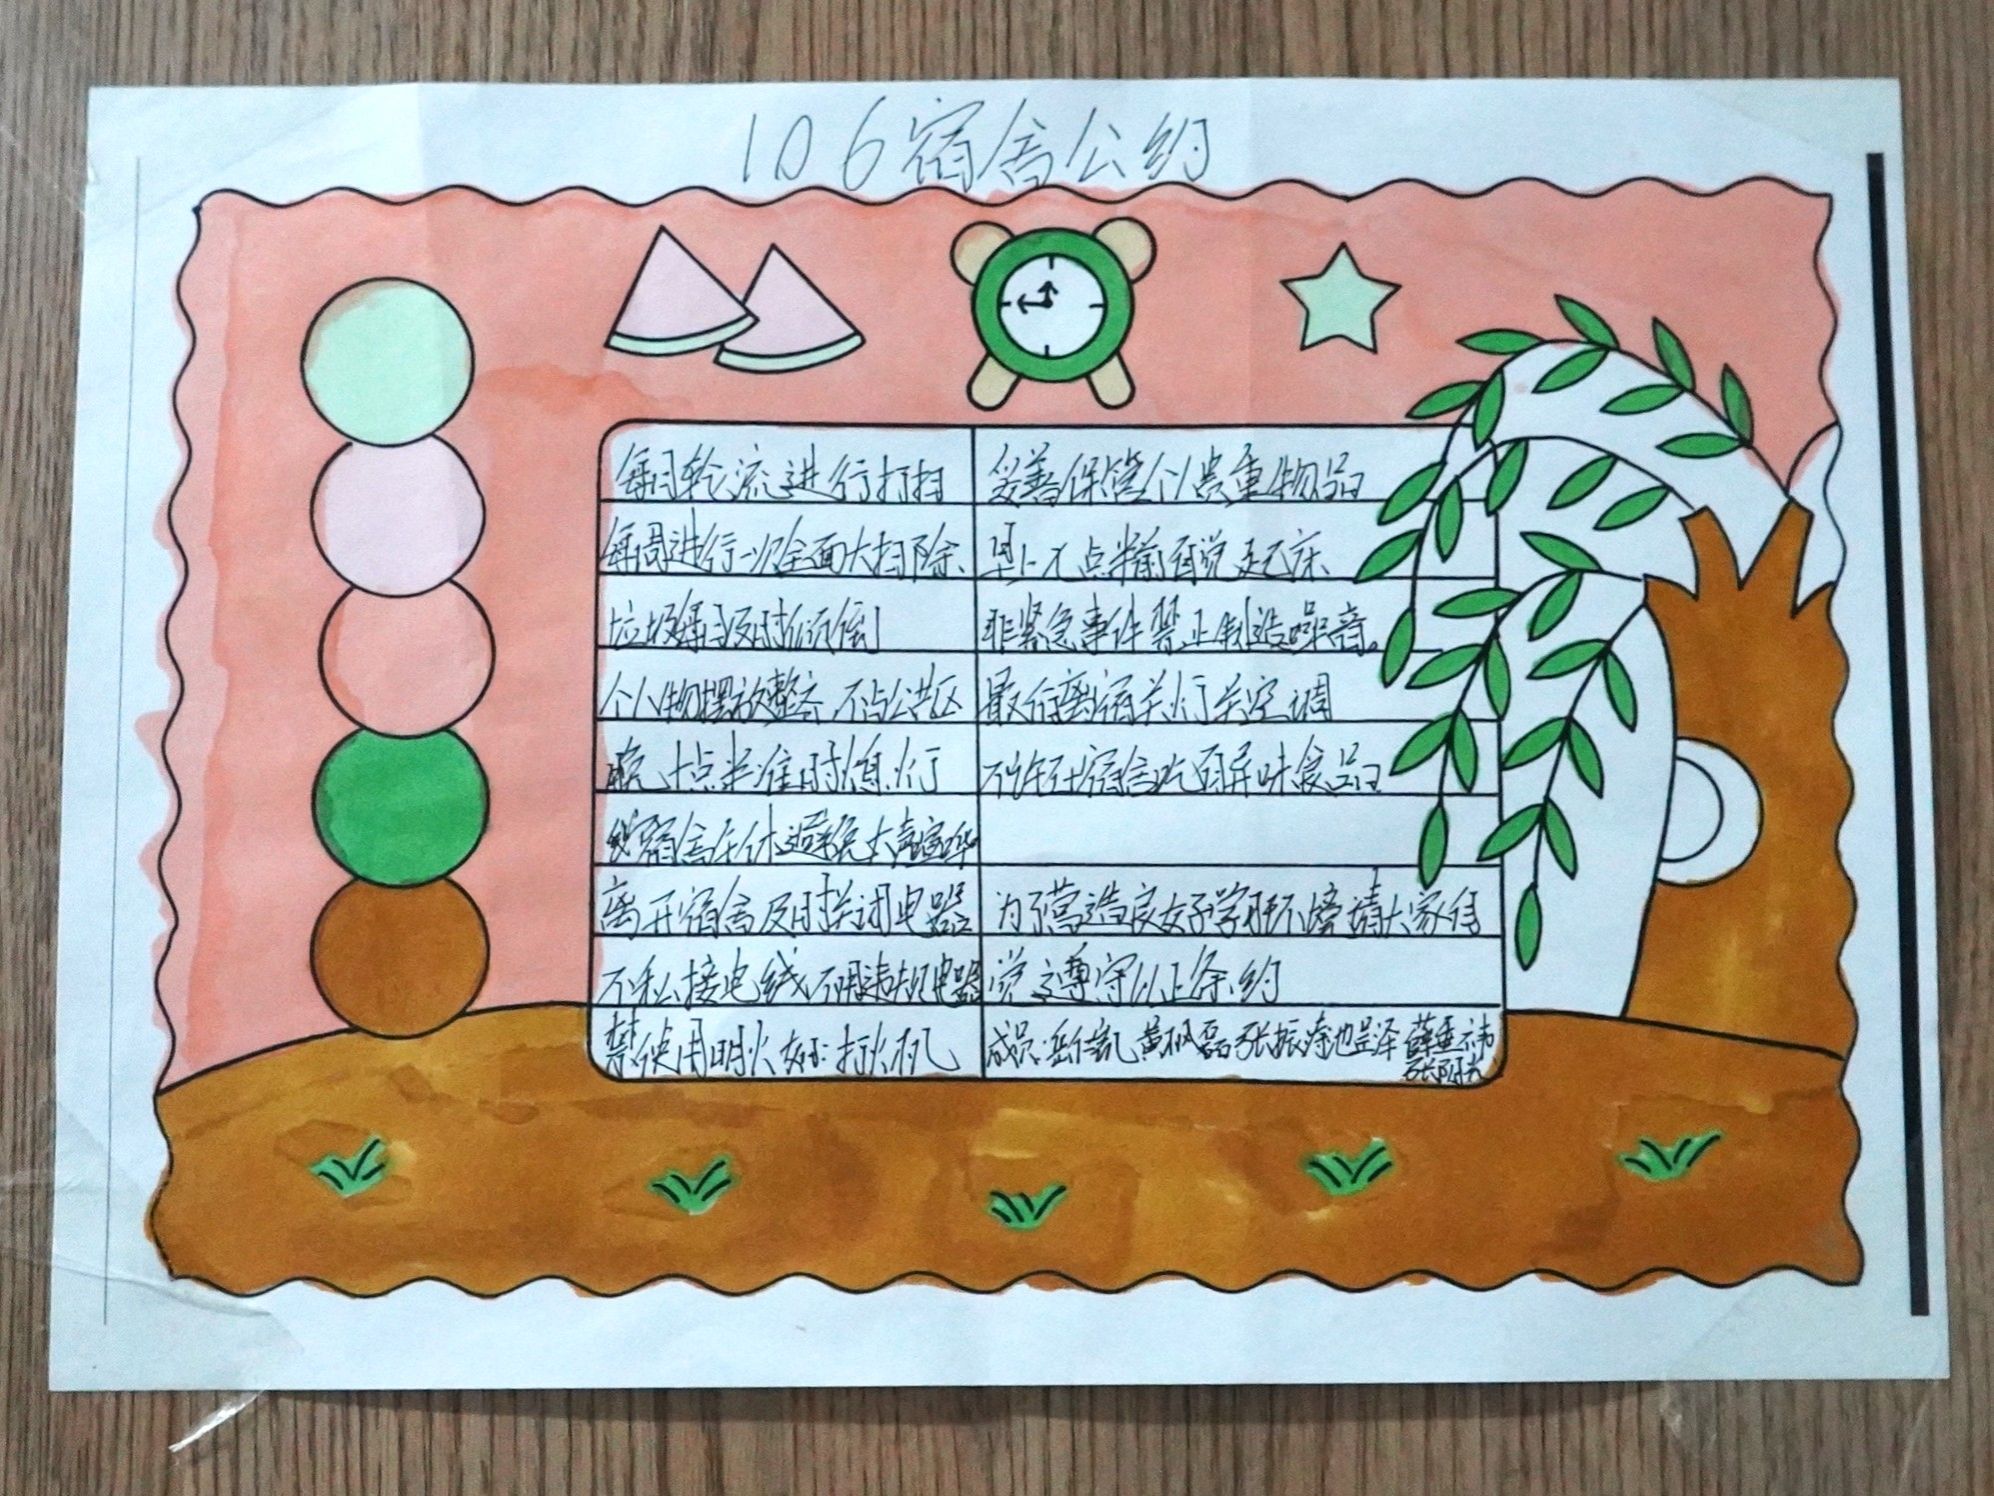 106宿舍公约
每日轮流进行打扫
每周进行一次全面大扫除
垃圾每日及时倾倒
个人物摆放整齐 不占公共区
晚十点半准时熄灯
宿舍午休避免大声喧哗
离开宿舍及时关闭电器
不私接电线 不用违规电器
禁使用明火 如: 打火机
妥善保管个人贵重物品
早上六点半前自觉起床
非紧急事件禁止制造噪音。
最后离宿关灯关空调
不许在宿舍吃有异味食品
为了营造良好学习环境请大家自
觉遵守以上条约
成员: 黄 磊 张振 泽 薛重祎